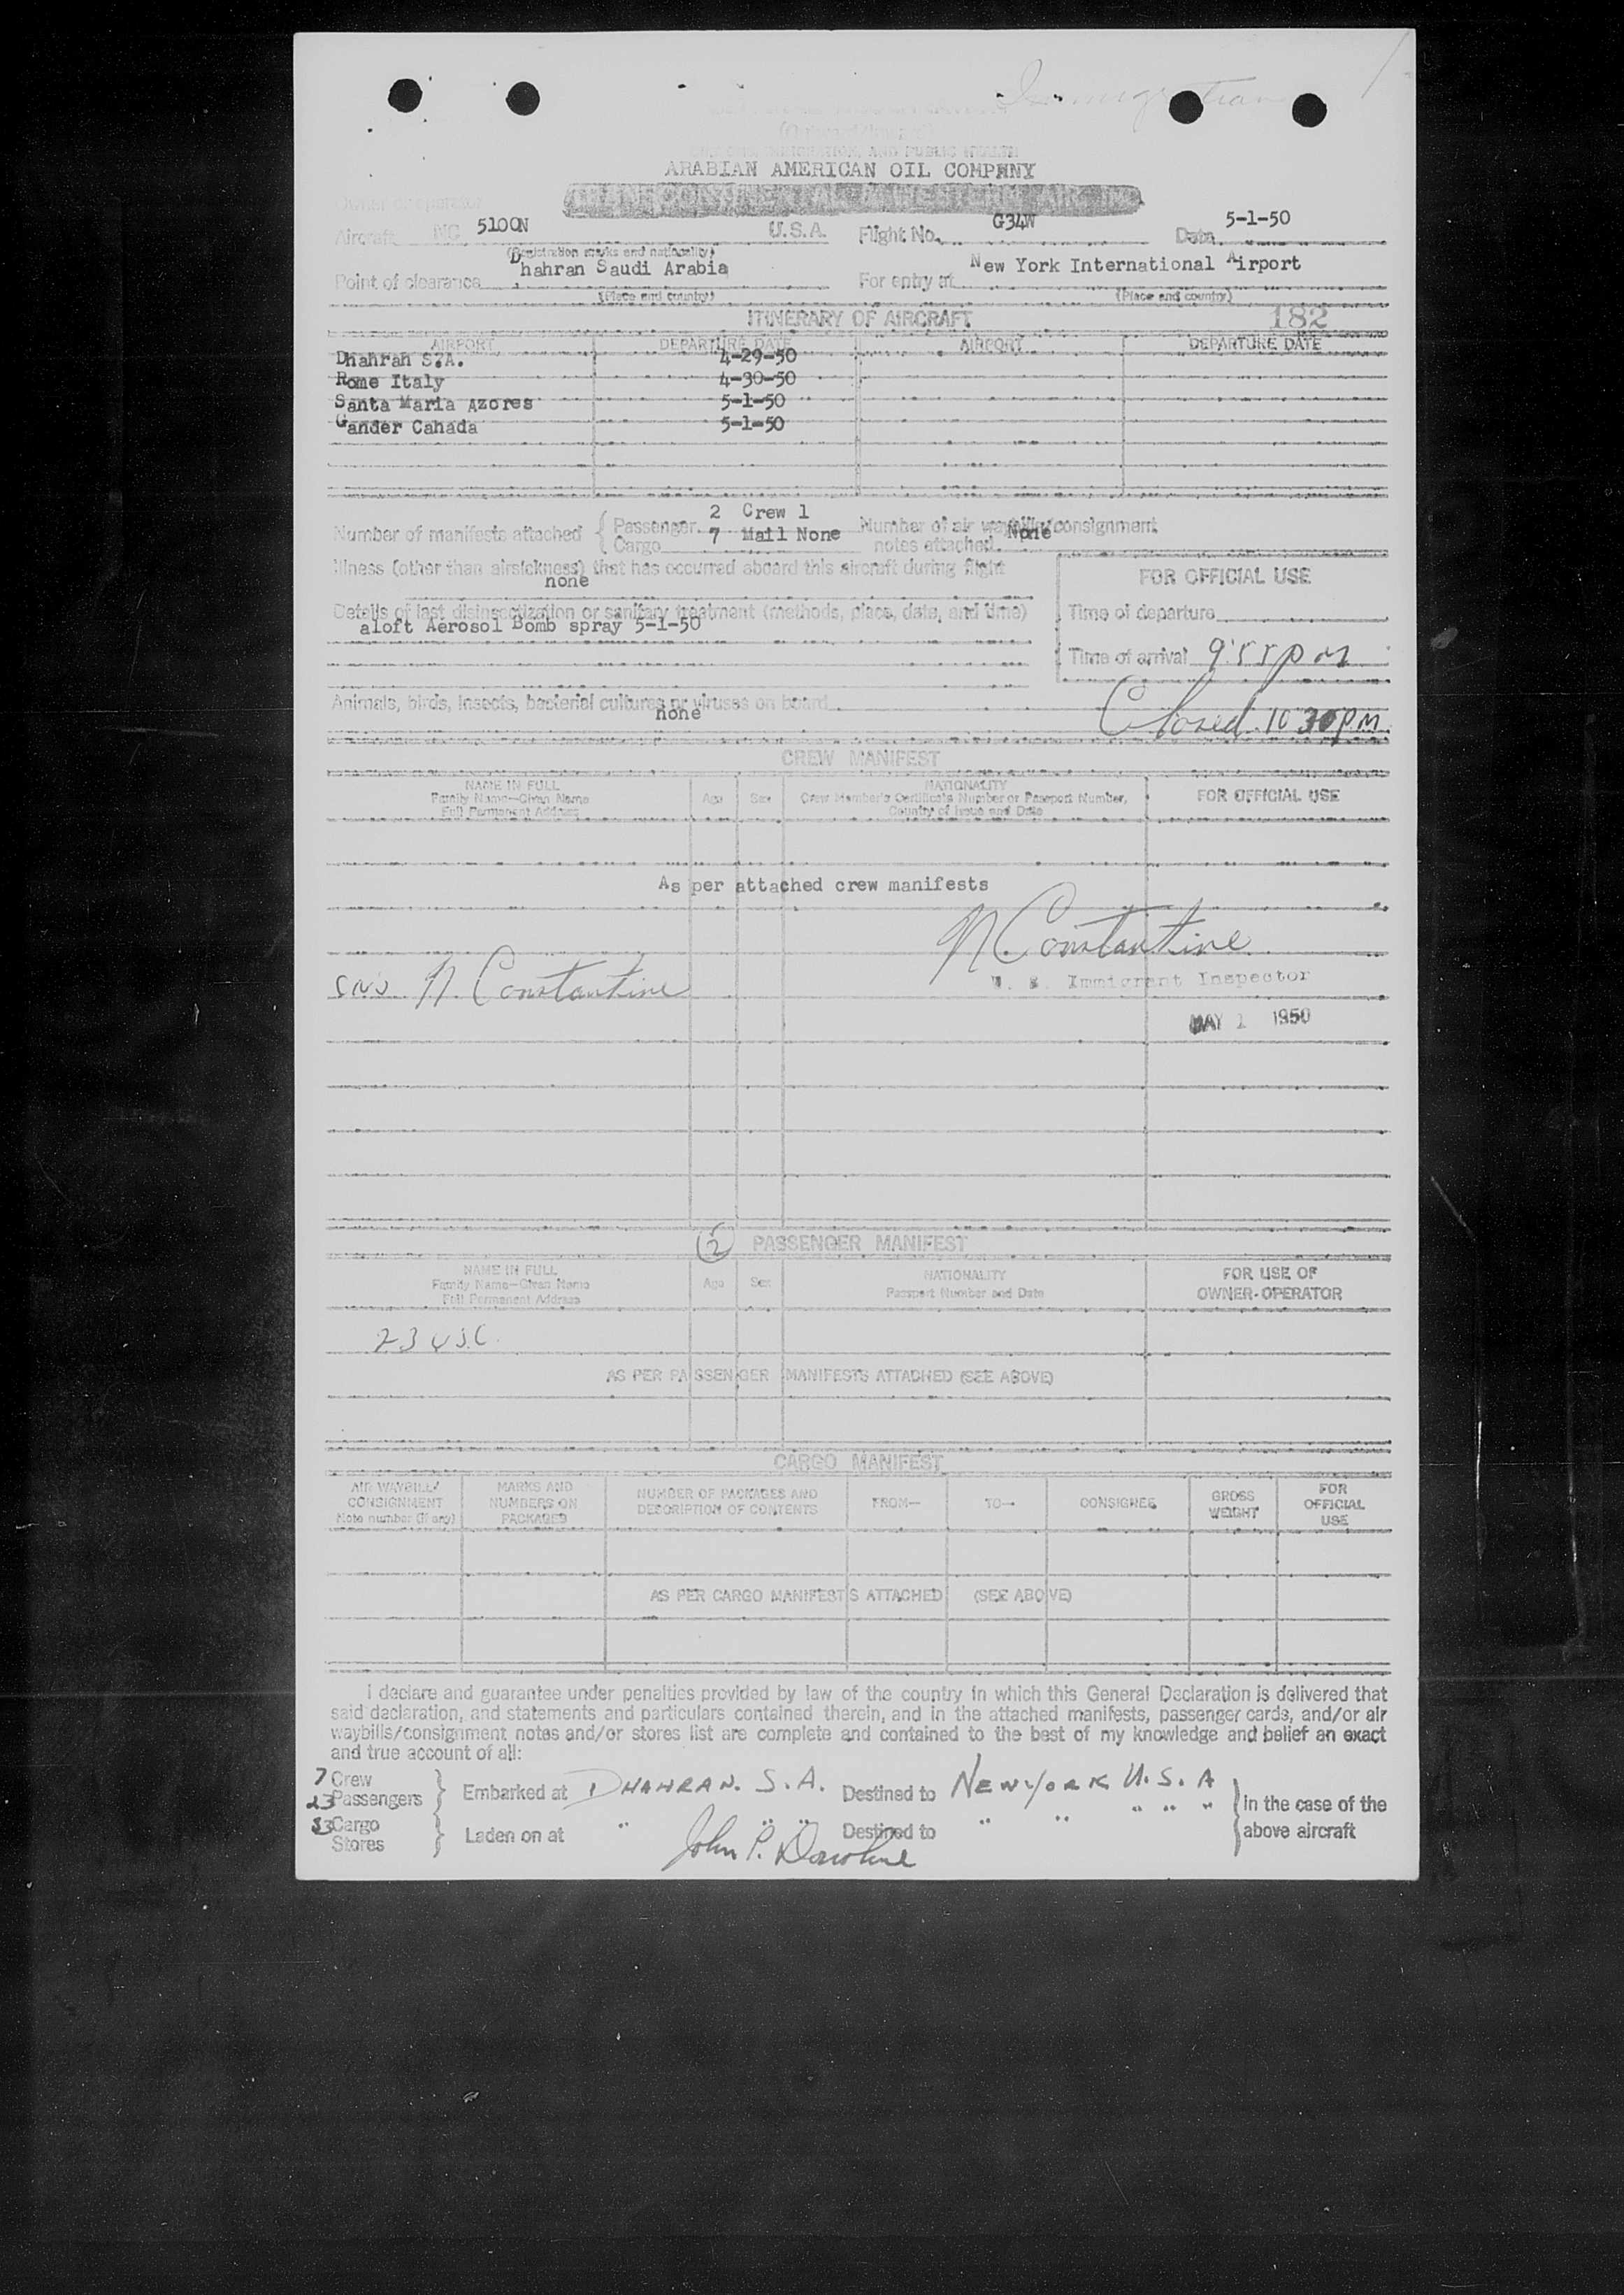 Immigration
(Outward/Inward)
CUSTOMS, IMMIGRATION, AND PUBLIC HEALTH
ARABIAN AMERICAN OIL COMPANY
Owner or operator
Aircraft NC 5100N U.S.A. Flight No. G34W Date 5-1-50
(Registration marks and nationality)
Point of clearance Dhahran Saudi Arabia For entry at New York International Airport
(Place and country) (Place and country)
ITINERARY OF AIRCRAFT 182
AIRPORT DEPARTURE DATE AIRPORT DEPARTURE DATE
Dhahran S.A. 4-29-50
Rome Italy 4-30-50
Santa Maria Azores 5-1-50
Gander Canada 5-1-50
Number of manifests attached { Passenger 2 Crew 1 Number of air waybills/consignment
Cargo 7 Mail None notes attached. None
Illness (other than airsickness) that has occurred aboard this aircraft during flight
none
FOR OFFICIAL USE
Details of last disinsectization or sanitary treatment (methods, place, date, and time)
aloft Aerosol Bomb spray 5-1-50
Time of departure
Time of arrival 9:55 pm
Animals, birds, insects, bacterial cultures or viruses on board
none
Closed 10 30 pm
CREW MANIFEST
NAME IN FULL
Family Name—Given Name
Full Permanent Address
Age Sex
NATIONALITY
Crew Member's Certificate Number or Passport Number,
Country of Issue and Date
FOR OFFICIAL USE
As per attached crew manifests
N. Constantine
N. Constantine
U. S. Immigrant Inspector
MAY 1 1950
(2) PASSENGER MANIFEST
NAME IN FULL
Family Name—Given Name
Full Permanent Address
Age Sex
NATIONALITY
Passport Number and Date
FOR USE OF
OWNER-OPERATOR
23 USC.
AS PER PASSENGER MANIFESTS ATTACHED (SEE ABOVE)
CARGO MANIFEST
AIR WAYBILL/
CONSIGNMENT
Note number (if any)
MARKS AND
NUMBERS ON
PACKAGES
NUMBER OF PACKAGES AND
DESCRIPTION OF CONTENTS
FROM— TO— CONSIGNEE
GROSS
WEIGHT
FOR
OFFICIAL
USE
AS PER CARGO MANIFESTS ATTACHED (SEE ABOVE)
I declare and guarantee under penalties provided by law of the country in which this General Declaration is delivered that
said declaration, and statements and particulars contained therein, and in the attached manifests, passenger cards, and/or air
waybills/consignment notes and/or stores list are complete and contained to the best of my knowledge and belief an exact
and true account of all:
7 Crew
23 Passengers } Embarked at DHAHRAN. S.A. Destined to NEW YORK U.S.A } in the case of the
Cargo
Stores } Laden on at " " " Destined to " " " " " above aircraft
John P.